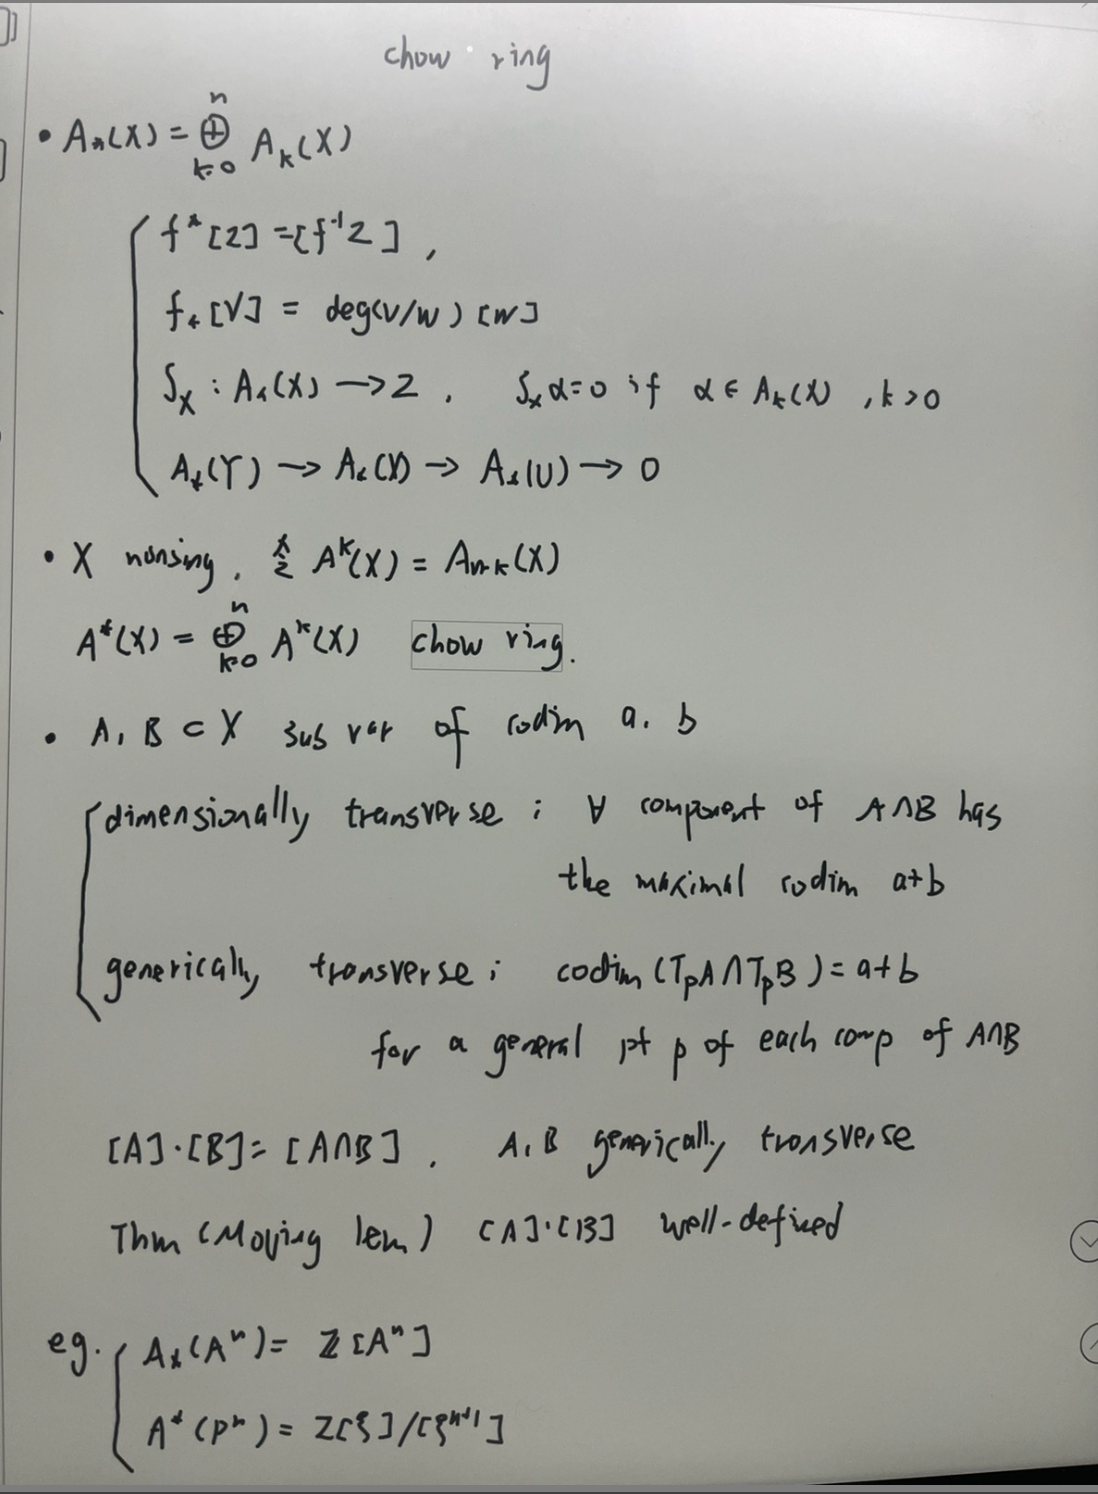 chow ring
• A_*(X) = ⊕_{k=0}^{n} A_k(X)
f^*[Z] = [f^{-1}Z] ,
f_*[V] = deg(V/W) [W]
∫_X : A_*(X) → Z , ∫_X α = 0 if α ∈ A_k(X) , k > 0
A_*(Y) → A_*(X) → A_*(U) → 0
• X nonsing , A^k(X) = A_{n-k}(X)
A^*(X) = ⊕_{k=0}^{n} A^k(X) chow ring.
• A, B ⊂ X sub var of codim a, b
dimensionally transverse ; ∀ component of A∩B has
the maximal codim a+b
generically transverse ; codim (T_pA ∩ T_pB) = a+b
for a general pt p of each comp of A∩B
[A]·[B] = [A∩B] , A, B generically transverse
Thm (Moving lem) [A]·[B] well-defined
eg. A_*(A^n) = Z[A^n]
A^*(P^n) = Z[ξ]/[ξ^{n+1}]